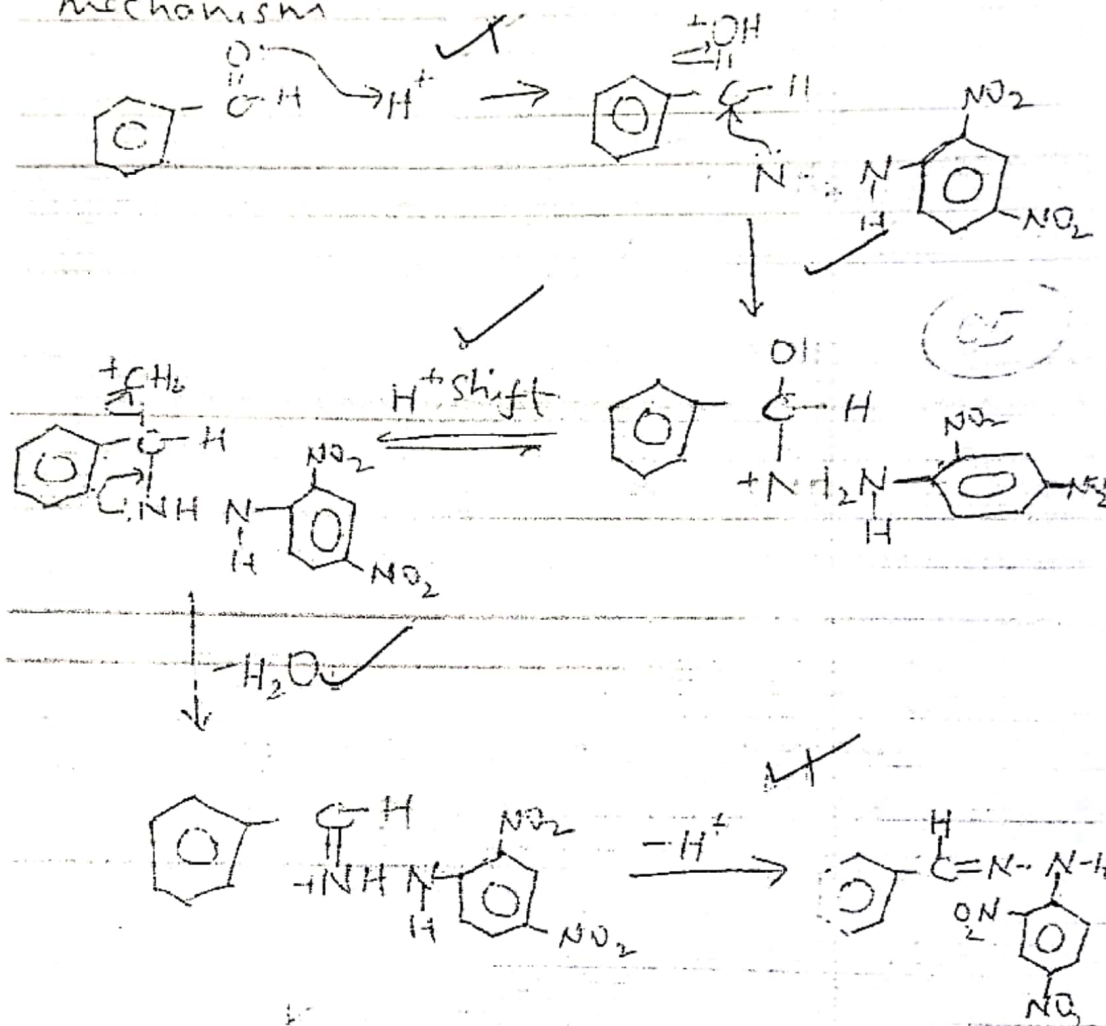 mechanism
O
C-H
H+
+OH
C-H
N
N
H
NO2
NO2
05
H+ shift
OH
C-H
+N H2N
H
NO2
NO2
C-H
NH
N
H
NO2
NO2
-H2O
C-H
+NH N
H
NO2
NO2
-H+
H
C=N-N-H
O2N
NO2